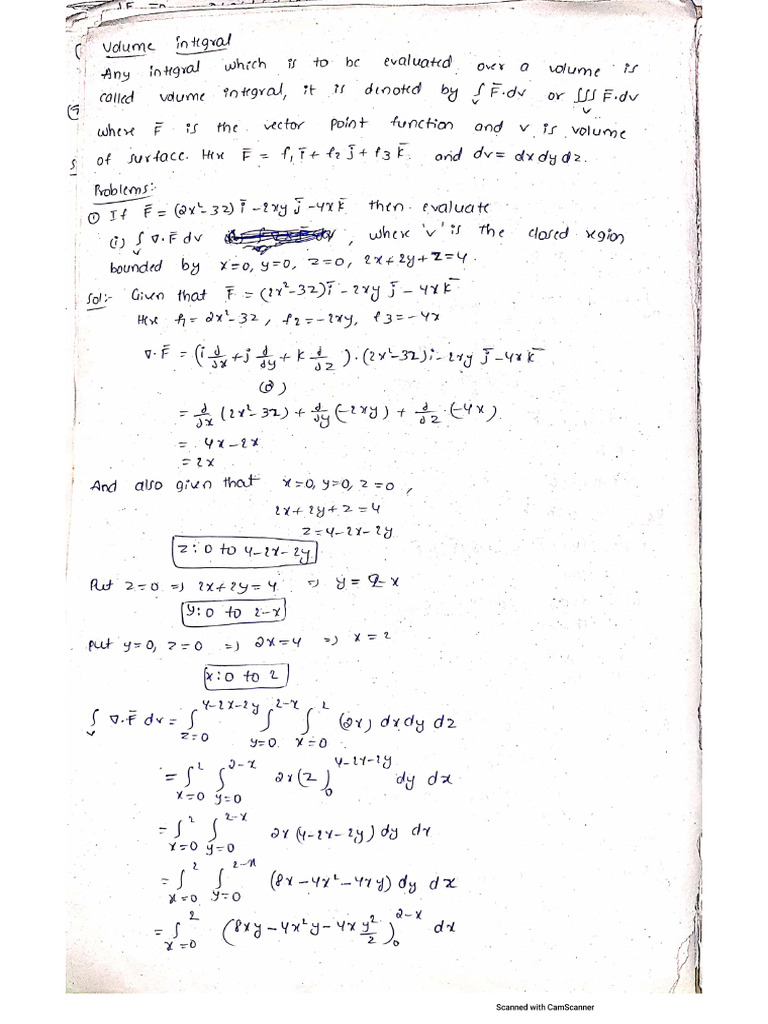 Volume integral
Any integral which is to be evaluated over a volume is
called volume integral, it is denoted by ∫_v F̄.dv or ∭_v F̄.dv
where F̄ is the vector point function and v is volume
of surface. Here F̄ = f₁ī + f₂j̄ + f₃k̄. and dv = dxdydz.
Problems:-
① If F̄ = (2x²-3z)ī - 2xy j̄ - 4xk̄ then evaluate
(i) ∫_v ∇.F̄ dv , where 'v' is the closed region
bounded by x=0, y=0, z=0, 2x+2y+z=4.
Sol:- Given that F̄ = (2x²-3z)ī - 2xy j̄ - 4xk̄
Here f₁=2x²-3z, f₂=-2xy, f₃=-4x
∇.F̄ = (i ∂/∂x + j ∂/∂y + k ∂/∂z).(2x²-3z)i - 2xy j̄ - 4xk̄
(or)
= ∂/∂x (2x²-3z) + ∂/∂y (-2xy) + ∂/∂z.(-4x)
= 4x-2x
= 2x
And also given that x=0, y=0, z=0,
2x+2y+z=4
z=4-2x-2y
z: 0 to 4-2x-2y
Put z=0 => 2x+2y=4 => y=2-x
y: 0 to 2-x
put y=0, z=0 => 2x=4 => x=2
x: 0 to 2
∫_v ∇.F̄ dv = ∫_{z=0}^{4-2x-2y} ∫_{y=0}^{2-x} ∫_{x=0}^{2} (2x) dxdydz
= ∫_{x=0}^{2} ∫_{y=0}^{2-x} 2x(z)_0^{4-2x-2y} dy dx
= ∫_{x=0}^{2} ∫_{y=0}^{2-x} 2x(4-2x-2y) dy dx
= ∫_{x=0}^{2} ∫_{y=0}^{2-x} (8x-4x²-4xy) dy dx
= ∫_{x=0}^{2} (8xy-4x²y-4x y²/2)_0^{2-x} dx
Scanned with CamScanner